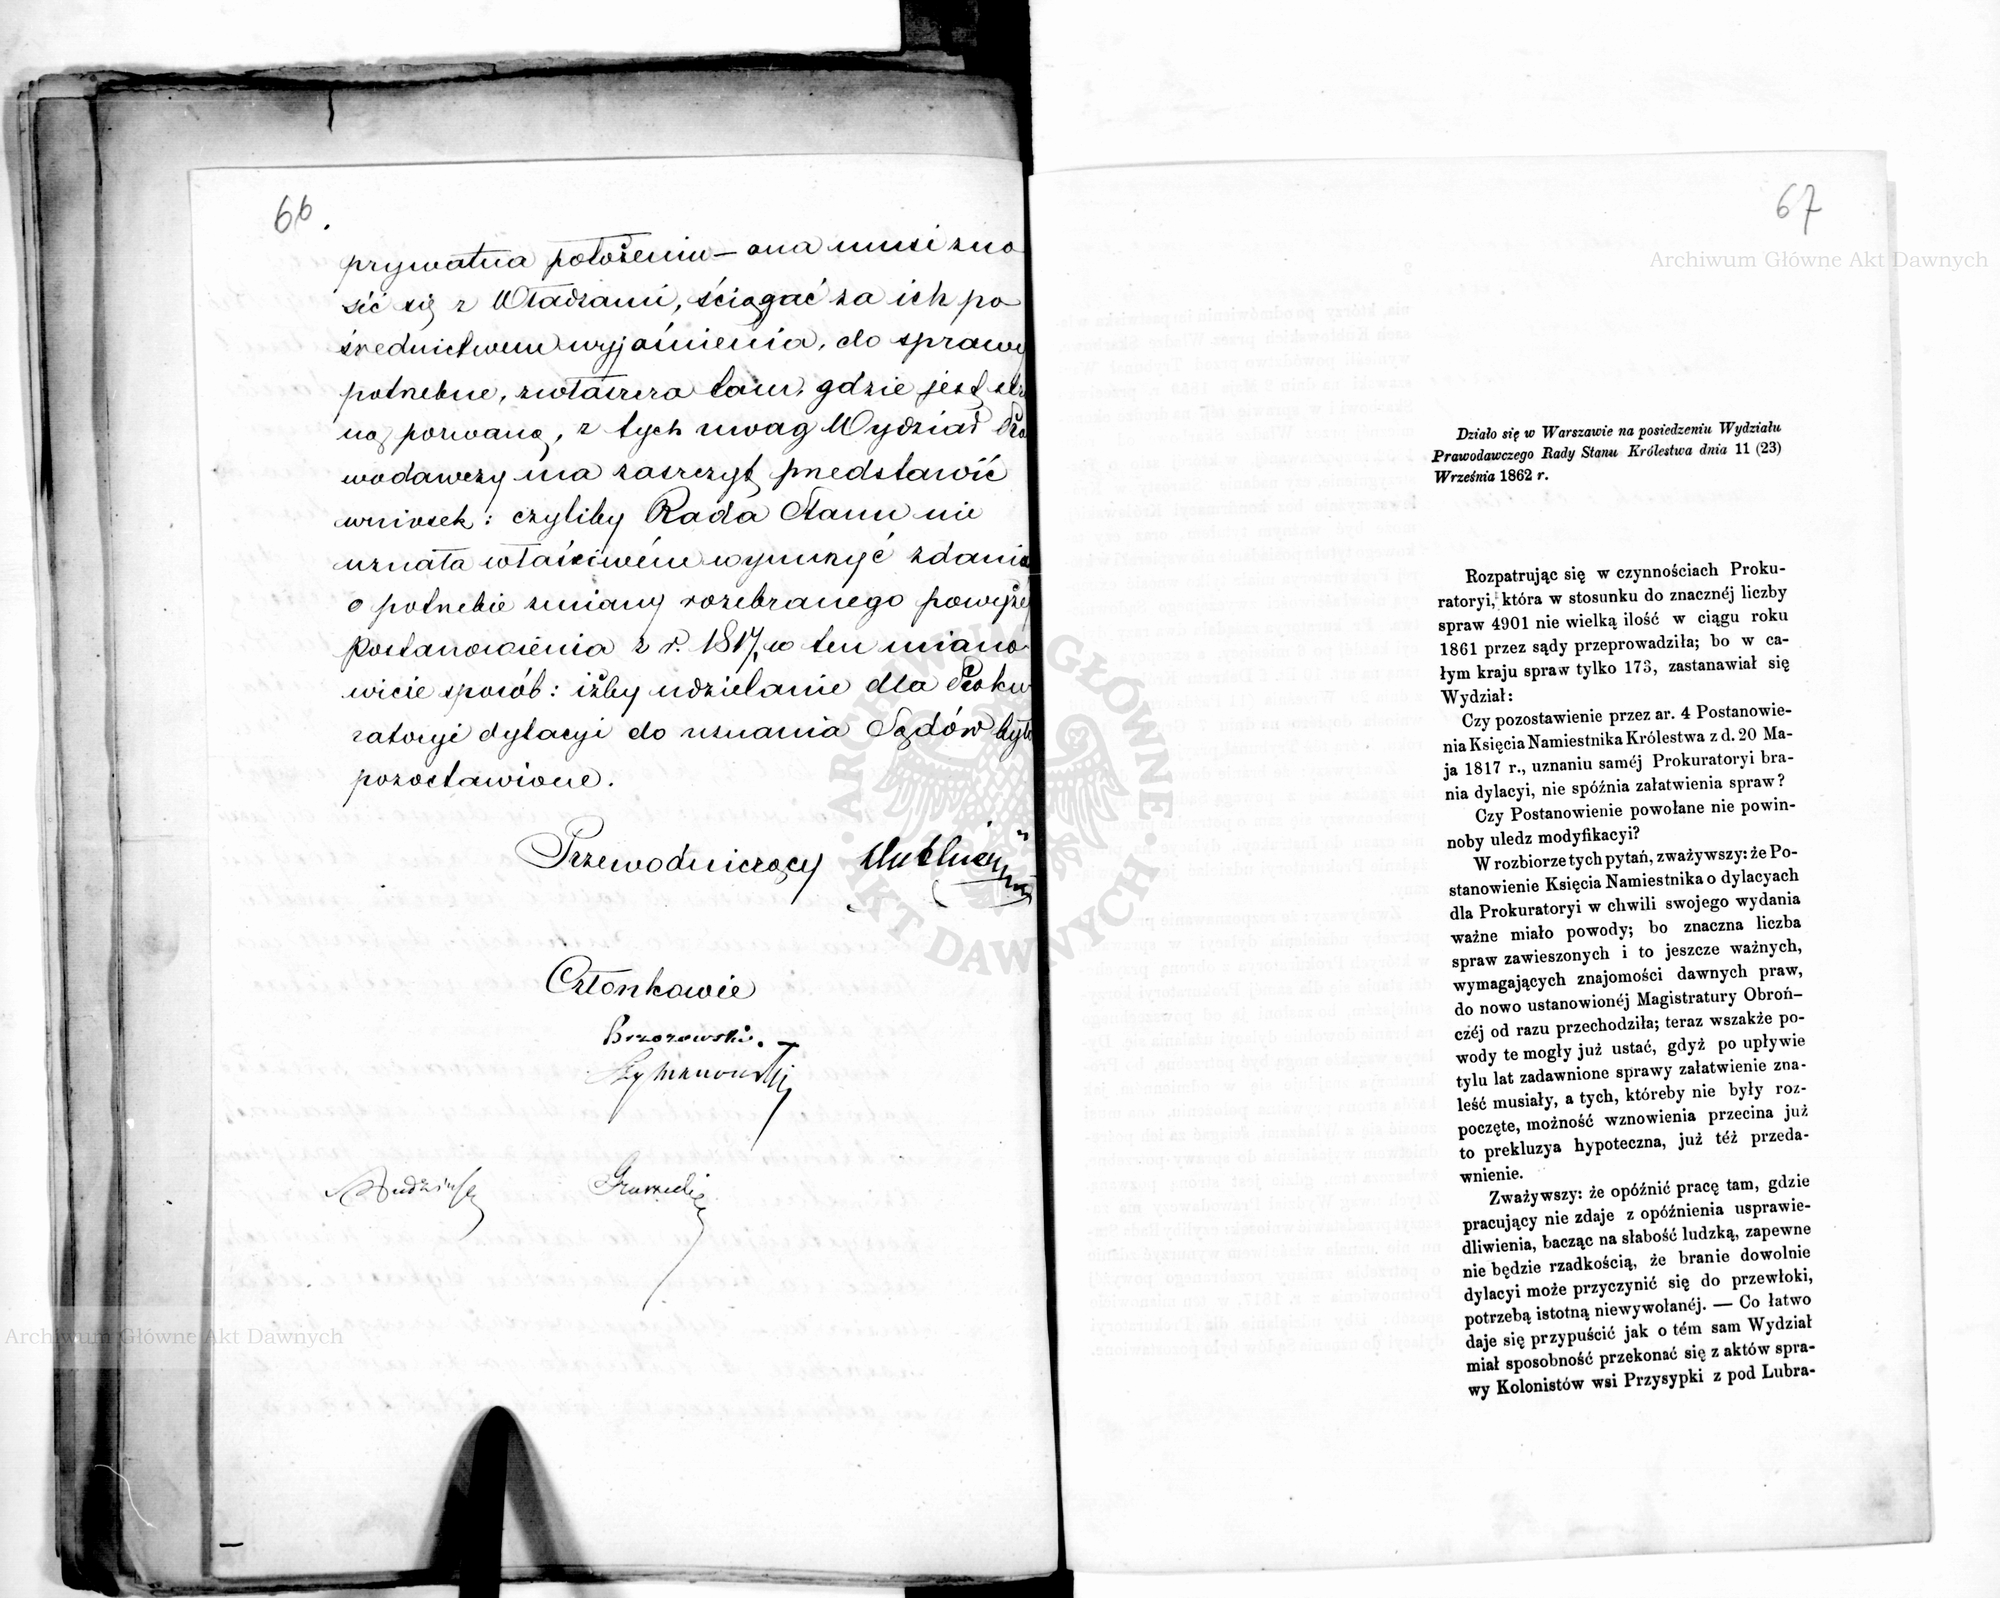 66.
prywatna położeniu – ona musi zno
sić się z Władzami, ściągać za ich po
średnictwem wyjaśnienia, do sprawy
potrzebne, zwłaszcza tam, gdzie jest stro
ną pozwaną, z tych uwag Wydział Pra
wodawczy ma zaszczyt przedstawić
wniosek: czyliby Rada Stanu nie
uznała właściwém wynurzyć zdania
o potrzebie zmiany rozebranego powyżéj
Postanowienia z r. 1817, w ten miano
wicie sposób: iżby udzielanie dla Proku
ratoryi dylacyi do uznania Sądów było
pozostawione.
Przewodniczący
Członkowie
Brzozowski.
Szymanowski
67
Działo się w Warszawie na posiedzeniu Wydziału
Prawodawczego Rady Stanu Królestwa dnia 11 (23)
Września 1862 r.
Rozpatrując się w czynnościach Proku-
ratoryi, która w stosunku do znacznéj liczby
spraw 4901 nie wielką ilość w ciągu roku
1861 przez sądy przeprowadziła; bo w ca-
łym kraju spraw tylko 173, zastanawiał się
Wydział:
Czy pozostawienie przez ar. 4 Postanowie-
nia Księcia Namiestnika Królestwa z d. 20 Ma-
ja 1817 r., uznaniu saméj Prokuratoryi bra-
nia dylacyi, nie spóźnia załatwienia spraw?
Czy Postanowienie powołane nie powin-
noby uledz modyfikacyi?
W rozbiorze tych pytań, zważywszy: że Po-
stanowienie Księcia Namiestnika o dylacyach
dla Prokuratoryi w chwili swojego wydania
ważne miało powody; bo znaczna liczba
spraw zawieszonych i to jeszcze ważnych,
wymagających znajomości dawnych praw,
do nowo ustanowionéj Magistratury Obroń-
czéj od razu przechodziła; teraz wszakże po-
wody te mogły już ustać, gdyż po upływie
tylu lat zadawnione sprawy załatwienie zna-
leść musiały, a tych, któreby nie były roz-
poczęte, możność wznowienia przecina już
to prekluzya hypoteczna, już téż przeda-
wnienie.
Zważywszy: że opóźnić pracę tam, gdzie
pracujący nie zdaje z opóźnienia usprawie-
dliwienia, bacząc na słabość ludzką, zapewne
nie będzie rzadkością, że branie dowolnie
dylacyi może przyczynić się do przewłoki,
potrzebą istotną niewywołanéj. — Co łatwo
daje się przypuścić jak o tém sam Wydział
miał sposobność przekonać się z aktów spra-
wy Kolonistów wsi Przysypki z pod Lubra-
Archiwum Główne Akt Dawnych
Archiwum Główne Akt Dawnych
ARCHIWUM GŁÓWNE
AKT DAWNYCH